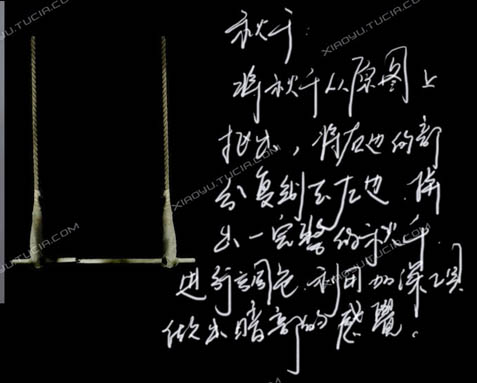 秋千:
将秋千从原图上
抠出，将右边的部
分复制至左边，做
出一完整的秋千，
进行调色，利用加深工具
做出暗部的感觉。
XIAOYU.TUCIA.COM